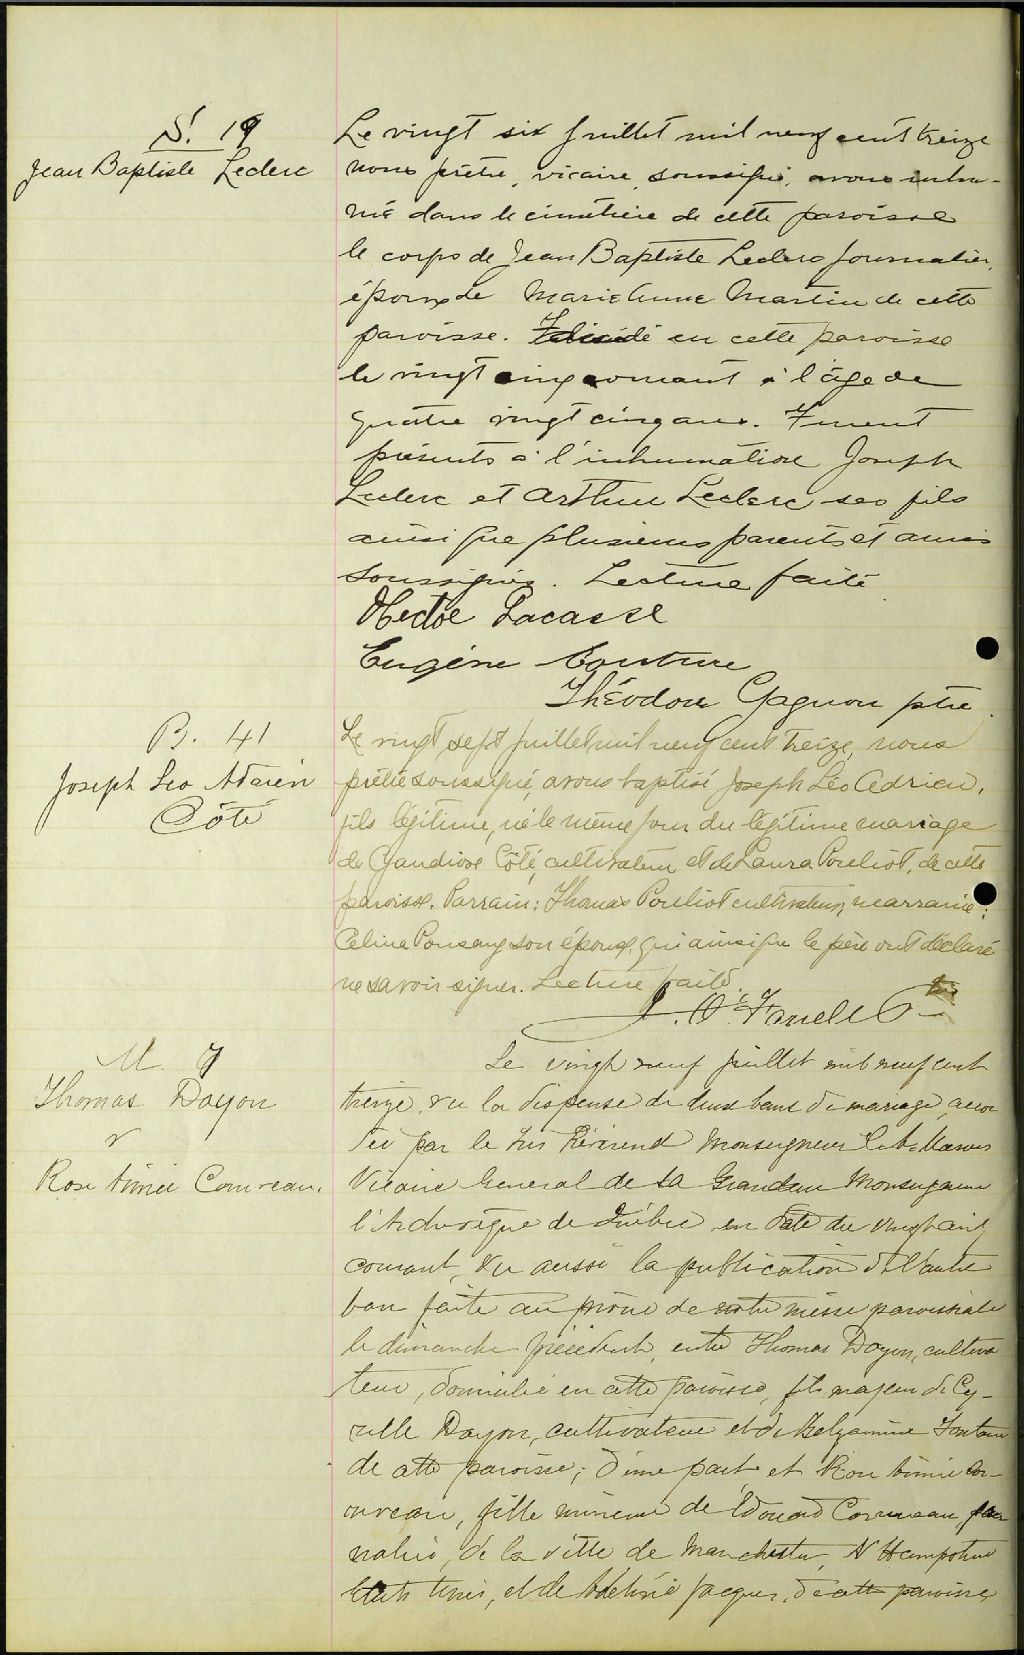 S. 19
Jean Baptiste Leclerc
Le vingt six juillet mil neuf cent treize
nous prêtre, vicaire, soussigné, avons inhu-
mé dans le cimetière de cette paroisse
le corps de Jean Baptiste Leclerc journalier,
époux de Marie Anne Martin de cette
paroisse. décédé en cette paroisse
le vingt cinq courant à l'âge de
quatre vingt cinq ans. Furent
présents à l'inhumation Joseph
Leclerc et Arthur Leclerc ses fils
ainsi que plusieurs parents et amis
soussignés. Lecture faite
Hector Lacasse
Eugène Couture
Théodore Gagnon ptre
B. 41
Joseph Leo Adrien
Côté
Le vingt sept juillet mil neuf cent treize, nous
prêtre soussigné, avons baptisé Joseph Léo Adrien,
fils légitime, né le même jour du légitime mariage
de Gaudiose Côté, cultivateur et de Laura Pouliot, de cette
paroisse. Parrain: Thomas Pouliot cultivateur, marraine:
Celina son épouse, qui ainsi que le père ont déclaré
ne savoir signer. Lecture faite.
J. O'Farrell Ptre
M. 7
Thomas Doyon
&
Rose Aimée Comveau.
Le vingt neuf juillet mil neuf cent
treize, vu la dispense de deux bans de mariage accor
dée par le très Révérend Monseigneur C. A. Marois
Vicaire General de Sa Grandeur Monseigneur
l'Archevêque de Québec en date du vingt cinq
courant, Vu aussi la publication de l'autre
ban faite au prône de notre messe paroissiale
le dimanche précédent, entre Thomas Doyon, cultiva
teur, domicilié en cette paroisse, fils majeur de Cy-
rille Doyon, cultivateur et de Belzamine
de cette paroisse; d'une part et Rose Aimée
fille mineure de Edouard jour
nalier, de la ville de Manchester, N Hampshire
Etats Unis, et de Adeline Jacques, de cette paroisse